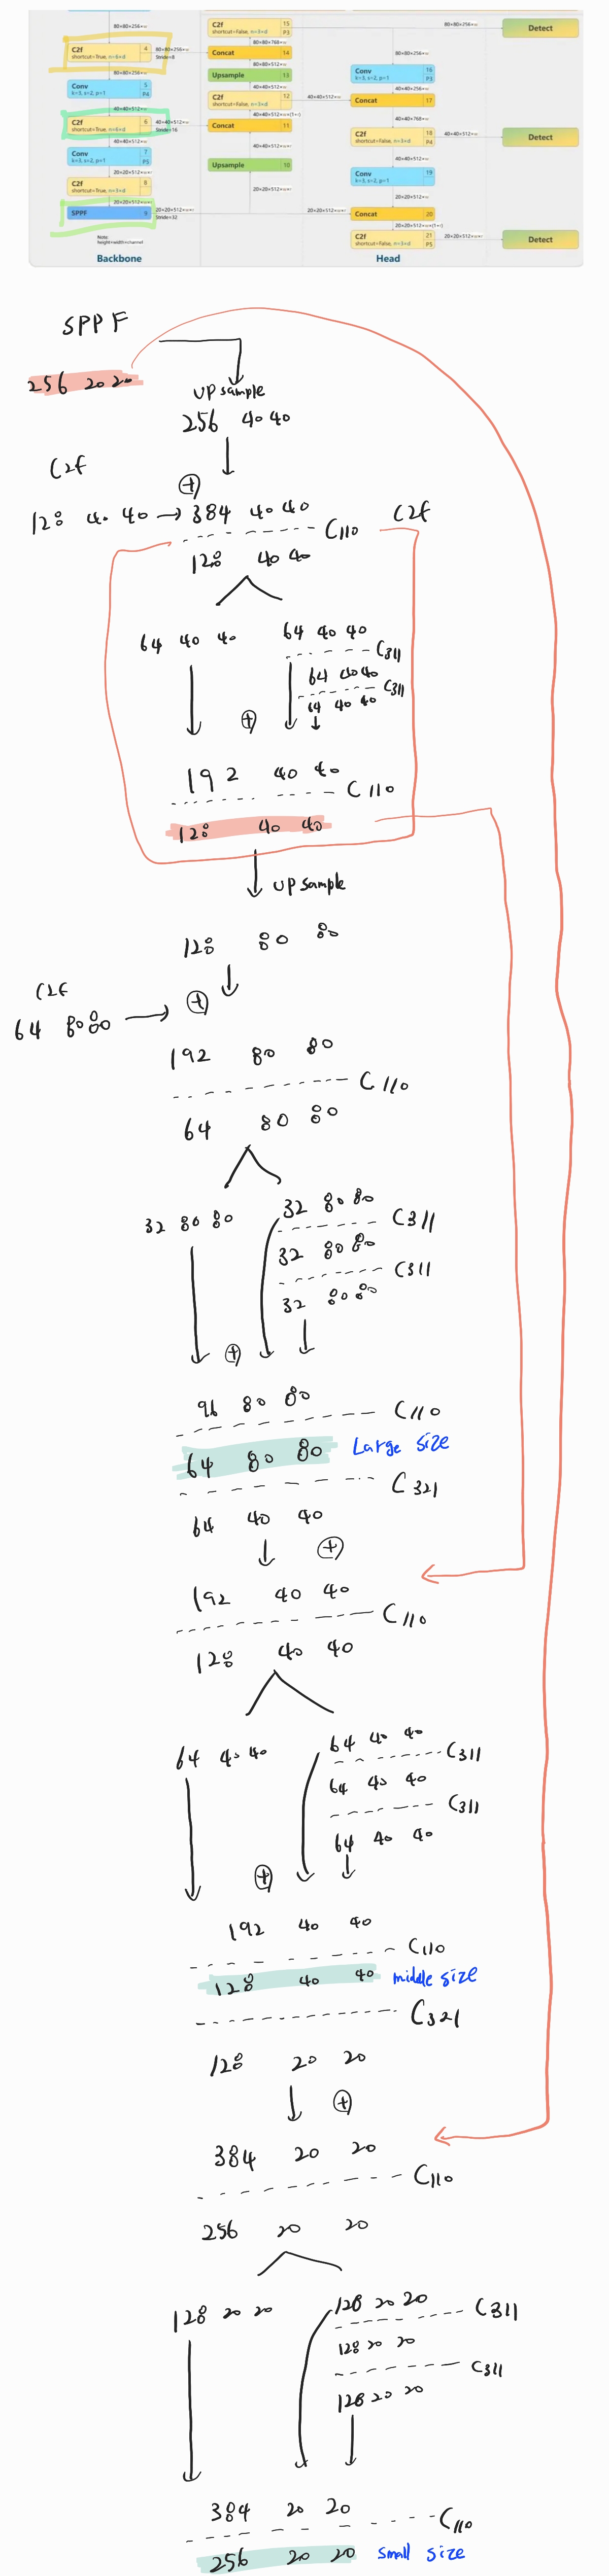 80×80×256×w
C2f 4
shortcut=True, n=6×d
80×80×256×w
Stride=8
80×80×256×w
Conv 5
k=3, s=2, p=1 P4
40×40×512×w
C2f 6
shortcut=True, n=6×d
40×40×512×w
Stride=16
40×40×512×w
Conv 7
k=3, s=2, p=1 P5
20×20×512×w×r
C2f 8
shortcut=True, n=3×d
20×20×512×w×r
SPPF 9
20×20×512×w×r
Stride=32
Note:
height×width×channel
Backbone
C2f 15
shortcut=False, n=3×d P3
80×80×256×w
Detect
80×80×768×w
Concat 14
80×80×512×w
Upsample 13
C2f 12
shortcut=False, n=3×d
40×40×512×w
40×40×512×w×(1+r)
Concat 11
40×40×512×w×r
Upsample 10
20×20×512×w×r
80×80×256×w
Conv 16
k=3, s=2, p=1 P3
40×40×256×w
Concat 17
40×40×768×w
C2f 18
shortcut=False, n=3×d P4
40×40×512×w
Detect
40×40×512×w
Conv 19
k=3, s=2, p=1
20×20×512×w
20×20×512×w×r
Concat 20
20×20×512×w×(1+r)
C2f 21
shortcut=False, n=3×d P5
20×20×512×w×r
Detect
Head
SPPF
256 20 20
UP sample
256 40 40
C2f
+
128 40 40 → 384 40 40
C110
C2f
128 40 40
64 40 40
64 40 40
C311
64 40 40
C311
64 40 40
+
192 40 40
C110
128 40 40
UP sample
128 80 80
C2f
64 80 80
+
192 80 80
C110
64 80 80
32 80 80
32 80 80
C311
32 80 80
C311
32 80 80
+
96 80 80
C110
64 80 80 Large size
C321
64 40 40
+
192 40 40
C110
128 40 40
64 40 40
64 40 40
C311
64 40 40
C311
64 40 40
+
192 40 40
C110
128 40 40 middle size
C321
128 20 20
+
384 20 20
C110
256 20 20
128 20 20
128 20 20
C311
128 20 20
C311
128 20 20
384 20 20
C110
256 20 20 small size